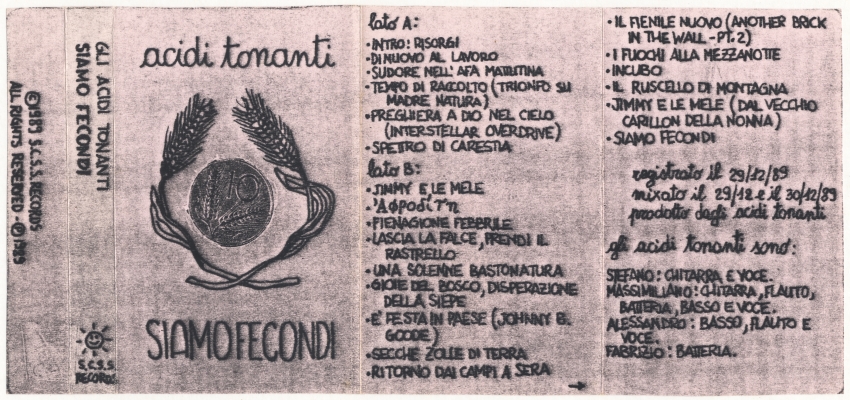 ©1989 S.C.S.S. RECORDS
ALL RIGHTS RESERVED - ℗1989
GLI ACIDI TONANTI
SIAMO FECONDI
S.C.S.S.
RECORDS
acidi tonanti
10
SIAMO FECONDI
lato A:
• INTRO: RISORGI
• DI NUOVO AL LAVORO
• SUDORE NELL'AFA MATTUTINA
• TEMPO DI RACCOLTO (TRIONFO SU
MADRE NATURA)
• PREGHIERA A DIO NEL CIELO
(INTERSTELLAR OVERDRIVE)
• SPETTRO DI CARESTIA
lato B:
• JIMMY E LE MELE
• 'Αφροδίτη
• FIENAGIONE FEBBRILE
• LASCIA LA FALCE, PRENDI IL
RASTRELLO
• UNA SOLENNE BASTONATURA
• GIOIE DEL BOSCO, DISPERAZIONE
DELLA SIEPE
• È FESTA IN PAESE (JOHNNY B.
GOODE)
• SECCHE ZOLLE DI TERRA
• RITORNO DAI CAMPI A SERA
→
• IL FIENILE NUOVO (ANOTHER BRICK
IN THE WALL - PT. 2)
• I FUOCHI ALLA MEZZANOTTE
• INCUBO
• IL RUSCELLO DI MONTAGNA
• JIMMY E LE MELE (DAL VECCHIO
CARILLON DELLA NONNA)
• SIAMO FECONDI
registrato il 29/12/89
mixato il 29/12 e il 30/12/89
prodotto dagli acidi tonanti
gli acidi tonanti sono:
STEFANO: CHITARRA E VOCE.
MASSIMILIANO: CHITARRA, FLAUTO,
BATTERIA, BASSO E VOCE.
ALESSANDRO: BASSO, FLAUTO E
VOCE.
FABRIZIO: BATTERIA.